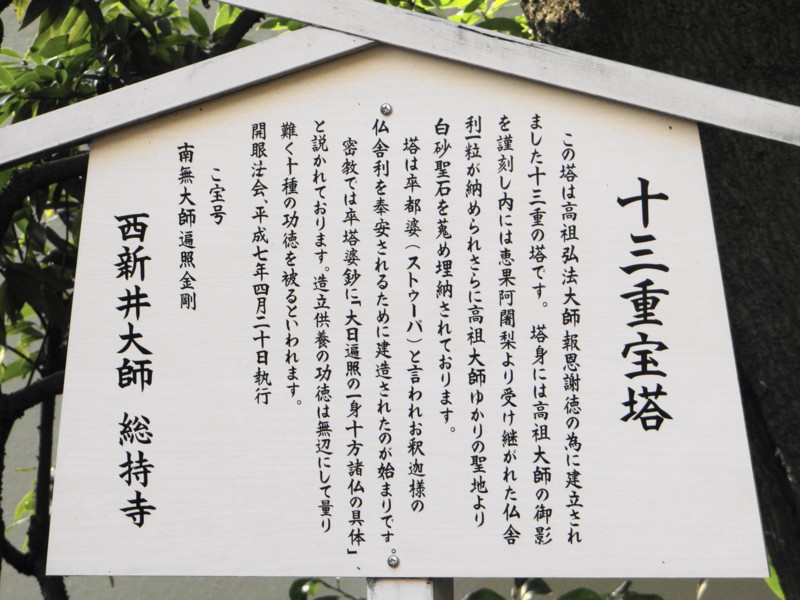 十三重宝塔
この塔は高祖弘法大師報恩謝徳の為に建立され
ました十三重の塔です。塔身には高祖大師の御影
を謹刻し内には恵果阿闍梨より受け継がれた仏舎
利一粒が納められさらに高祖大師ゆかりの聖地より
白砂聖石を蒐め埋納されております。
塔は卒都婆(ストゥーパ)と言われお釈迦様の
仏舎利を奉安されるために建造されたのが始まりです。
密教では卒塔婆鈔に「大日遍照の一身十方諸仏の具体」、
と説かれております。造立供養の功徳は無辺にして量り
難く十種の功徳を被るといわれます。
開眼法会、平成七年四月二十日執行
ご宝号
南無大師遍照金剛
西新井大師 総持寺